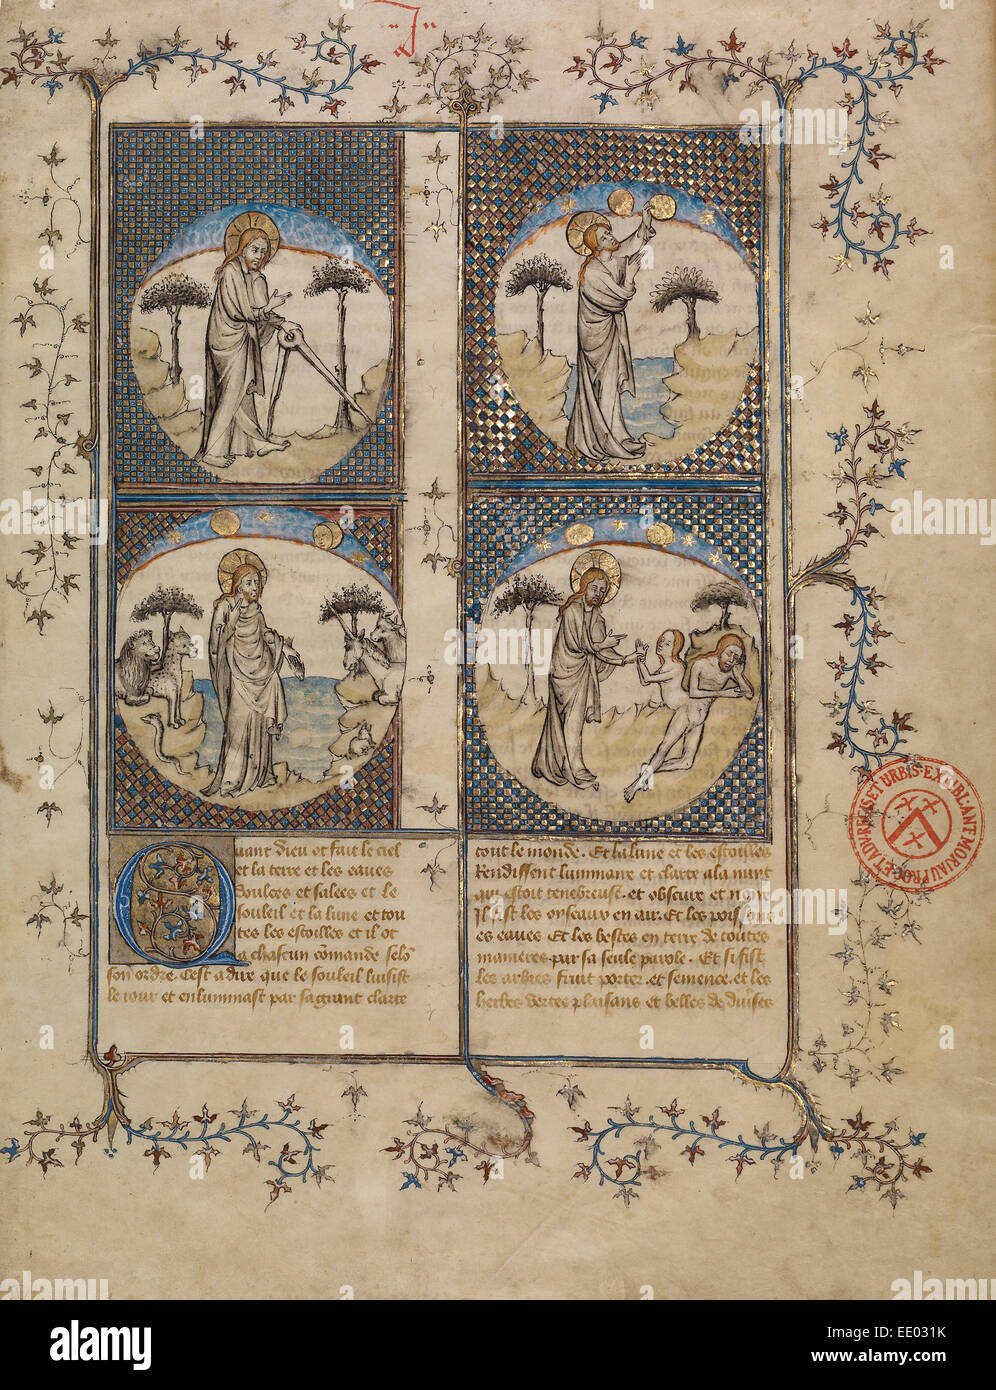 J
uant dieu ot fait le ciel
et la terre et les eaues
doulces et salees et le
souleil et la lune et tou
tes les estoilles et il ot
a chascun cōmande selō
son ordre. Cest a dire que le souleil luisist
le iour et enluminast par sa grant clarte
tout le monde. Et la lune et les estoilles
Rendissent luminaire et clarte a la nuit
qui estoit tenebreuse. et obscure et noire
Il fist les oyseaux en air. Et les poissons
es eaues. Et les bestes en terre de toutes
manieres par sa seule parole. Et si fist
les arbres fruit porter. et semence. et les
herbes vertes plaisans et belles de diũses
URBIS EX BIBL ANT MORIAU PROC ET ADU REGIS ET
alamy stock photo
a
alamy
www.alamy.com
Image ID: EE031K